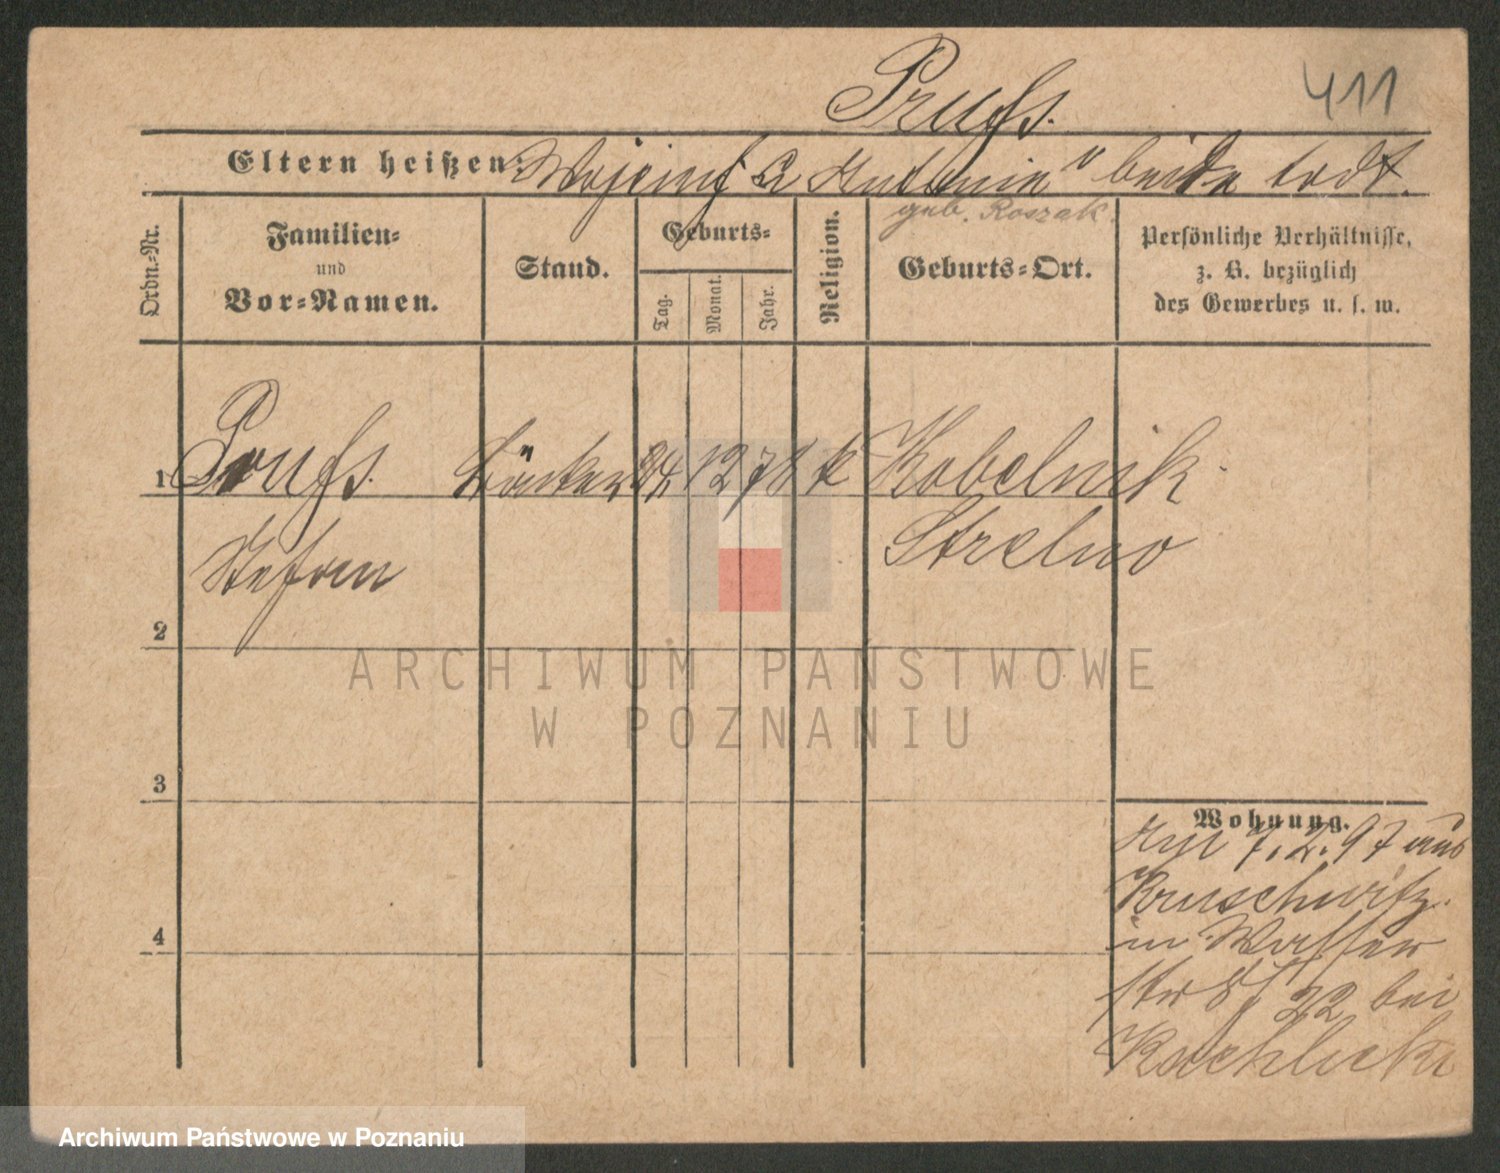 Prufs.
411
Eltern heißen: Wojciech & Antonie beide todt.
geb. Roszak.
Ordn.-Nr.
Familien-
und
Vor-Namen.
Stand.
Geburts-
Tag.
Monat.
Jahr.
Religion.
Geburts-Ort.
Persönliche Verhältnisse,
z. B. bezüglich
des Gewerbes u. s. w.
1 Prufs. Bäcker 24 12 78 k Kobelnik
Stefan Strelno
2
3
4
Wohnung.
7.2.97 aus
Kruschwitz.
in Wasser
str 22 bei
ARCHIWUM PAŃSTWOWE
W POZNANIU
Archiwum Państwowe w Poznaniu